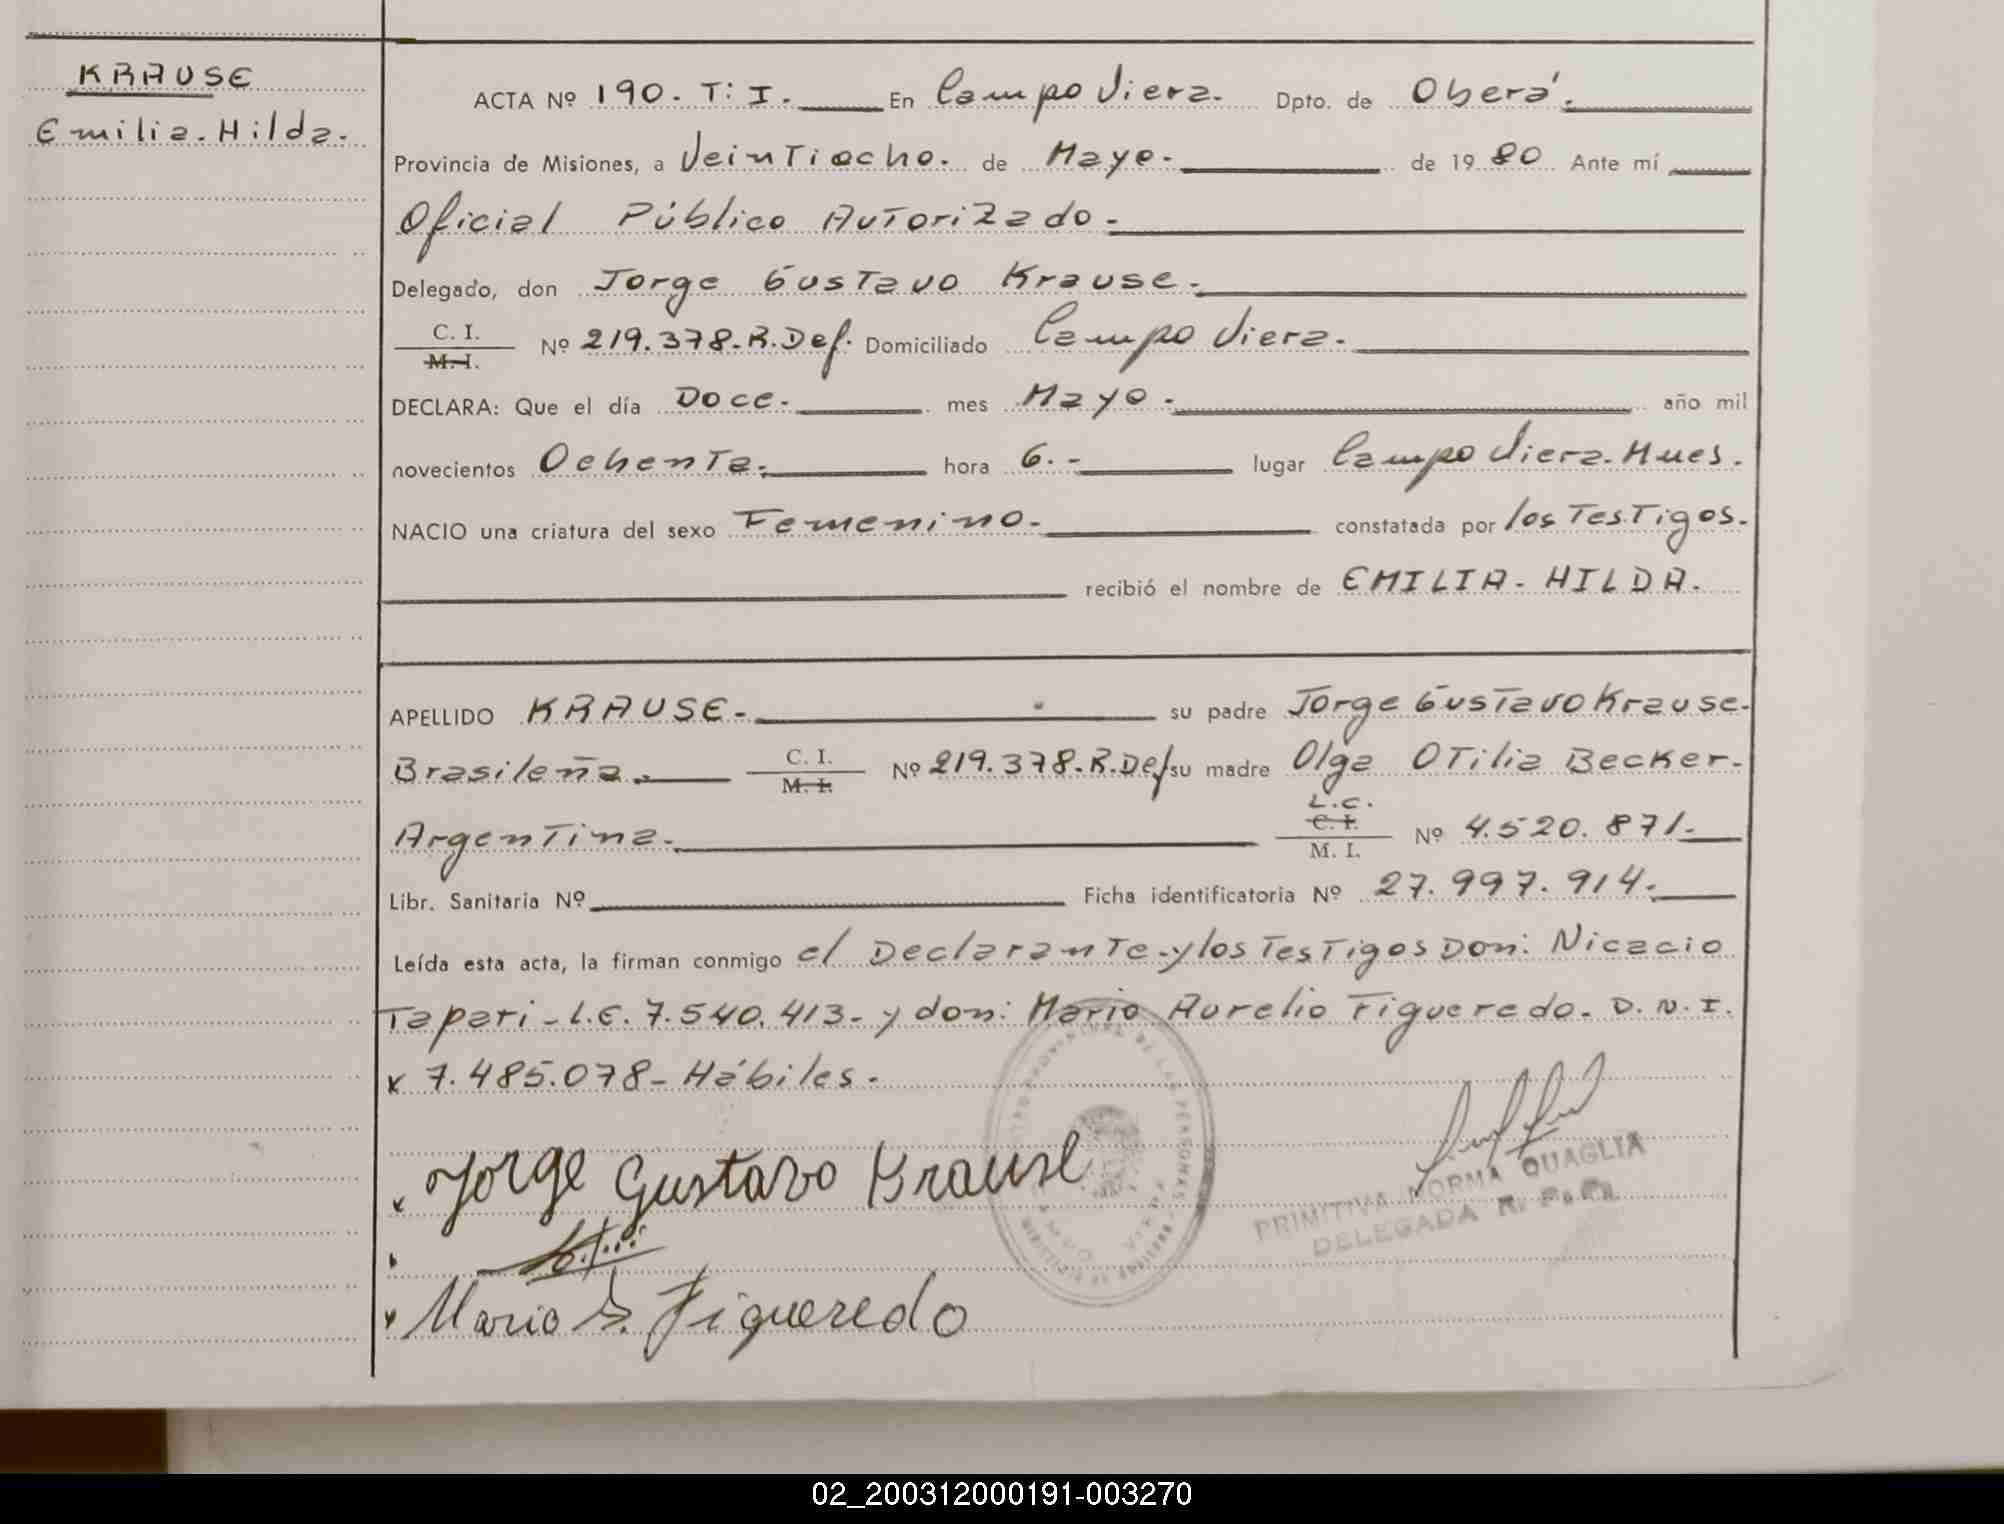 KRAUSE
Emilia-Hilda.
ACTA Nº 190. T: I. En Campo Viera. Dpto. de Oberá.
Provincia de Misiones, a Veintiocho. de Mayo. de 1980 Ante mí
Oficial Público Autorizado.
Delegado, don Jorge Gustavo Krause.
C. I.
M. I. Nº 219.378.R.Def. Domiciliado Campo Viera.
DECLARA: Que el día Doce. mes Mayo. año mil
novecientos Ochenta. hora 6.- lugar Campo Viera-Mnes.
NACIO una criatura del sexo Femenino. constatada por los Testigos.
recibió el nombre de EMILIA-HILDA.
APELLIDO KRAUSE. su padre Jorge Gustavo Krause.
Brasileña. C. I.
M. I. Nº 219.378.R.Def su madre Olga Otilia Becker.
L.C.
Argentina. C. I.
M. I. Nº 4.520.871.
Libr. Sanitaria Nº Ficha identificatoria Nº 27.997.914.
Leída esta acta, la firman conmigo el Declarante-y los Testigos Don: Nicacio
Tapari-L.E. 7.540.413- y don: Mario Aurelio Figueredo. D.N.I.
7.485.078- Hábiles.
Jorge Gustavo Krause
PRIMITIVA NORMA QUAGLIA
DELEGADA
Mario A. Figueredo
02_200312000191-003270